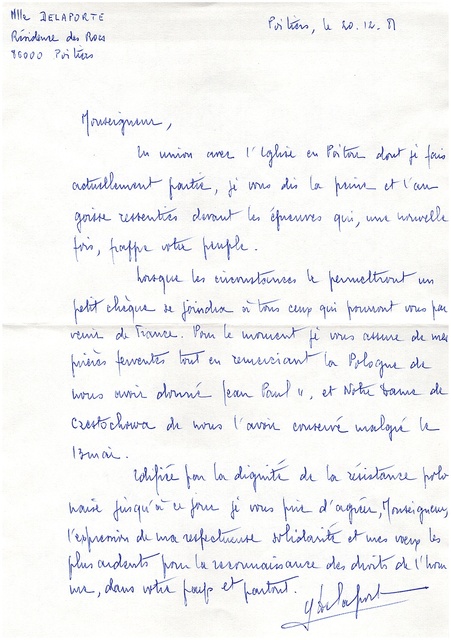 Mlle DELAPORTE
Résidence des Rocs
86000 Poitiers
Poitiers, le 20.12.81
Monseigneur,
En union avec l'Eglise en Poitou dont je fais
actuellement partie, je vous dis la peine et l'an
goisse ressenties devant les épreuves qui, une nouvelle
fois, frappe votre peuple.
Lorsque les circonstances le permettront un
petit chèque se joindra à tous ceux qui pourront vous par
venir de France. Pour le moment je vous assure de mes
prières ferventes tout en remerciant la Pologne de
nous avoir donné Jean Paul II, et Notre Dame de
Czestochowa de nous l'avoir conservé malgré le
13 mai.
Edifiée par la dignité de la résistance polo
naise jusqu'à ce jour je vous prie d'agréer, Monseigneur,
l'expression de ma respectueuse solidarité et mes vœux les
plus ardents pour la reconnaissance des droits de l'hom
me, dans votre pays et partout.
Y Delaporte